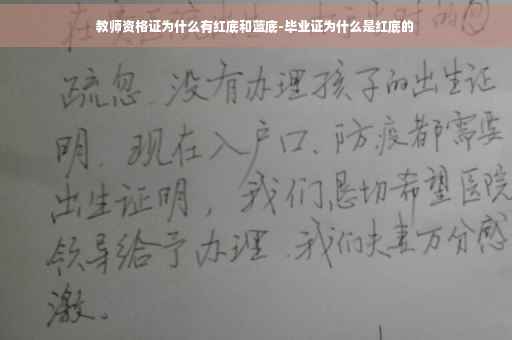 教师资格证为什么有红底和蓝底-毕业证为什么是红底的
疏忽、没有办理孩子的出生证
明、现在入户口、防疫都需要
出生证明，我们恳切希望医院
领导给予办理、我们夫妻万分感
激。